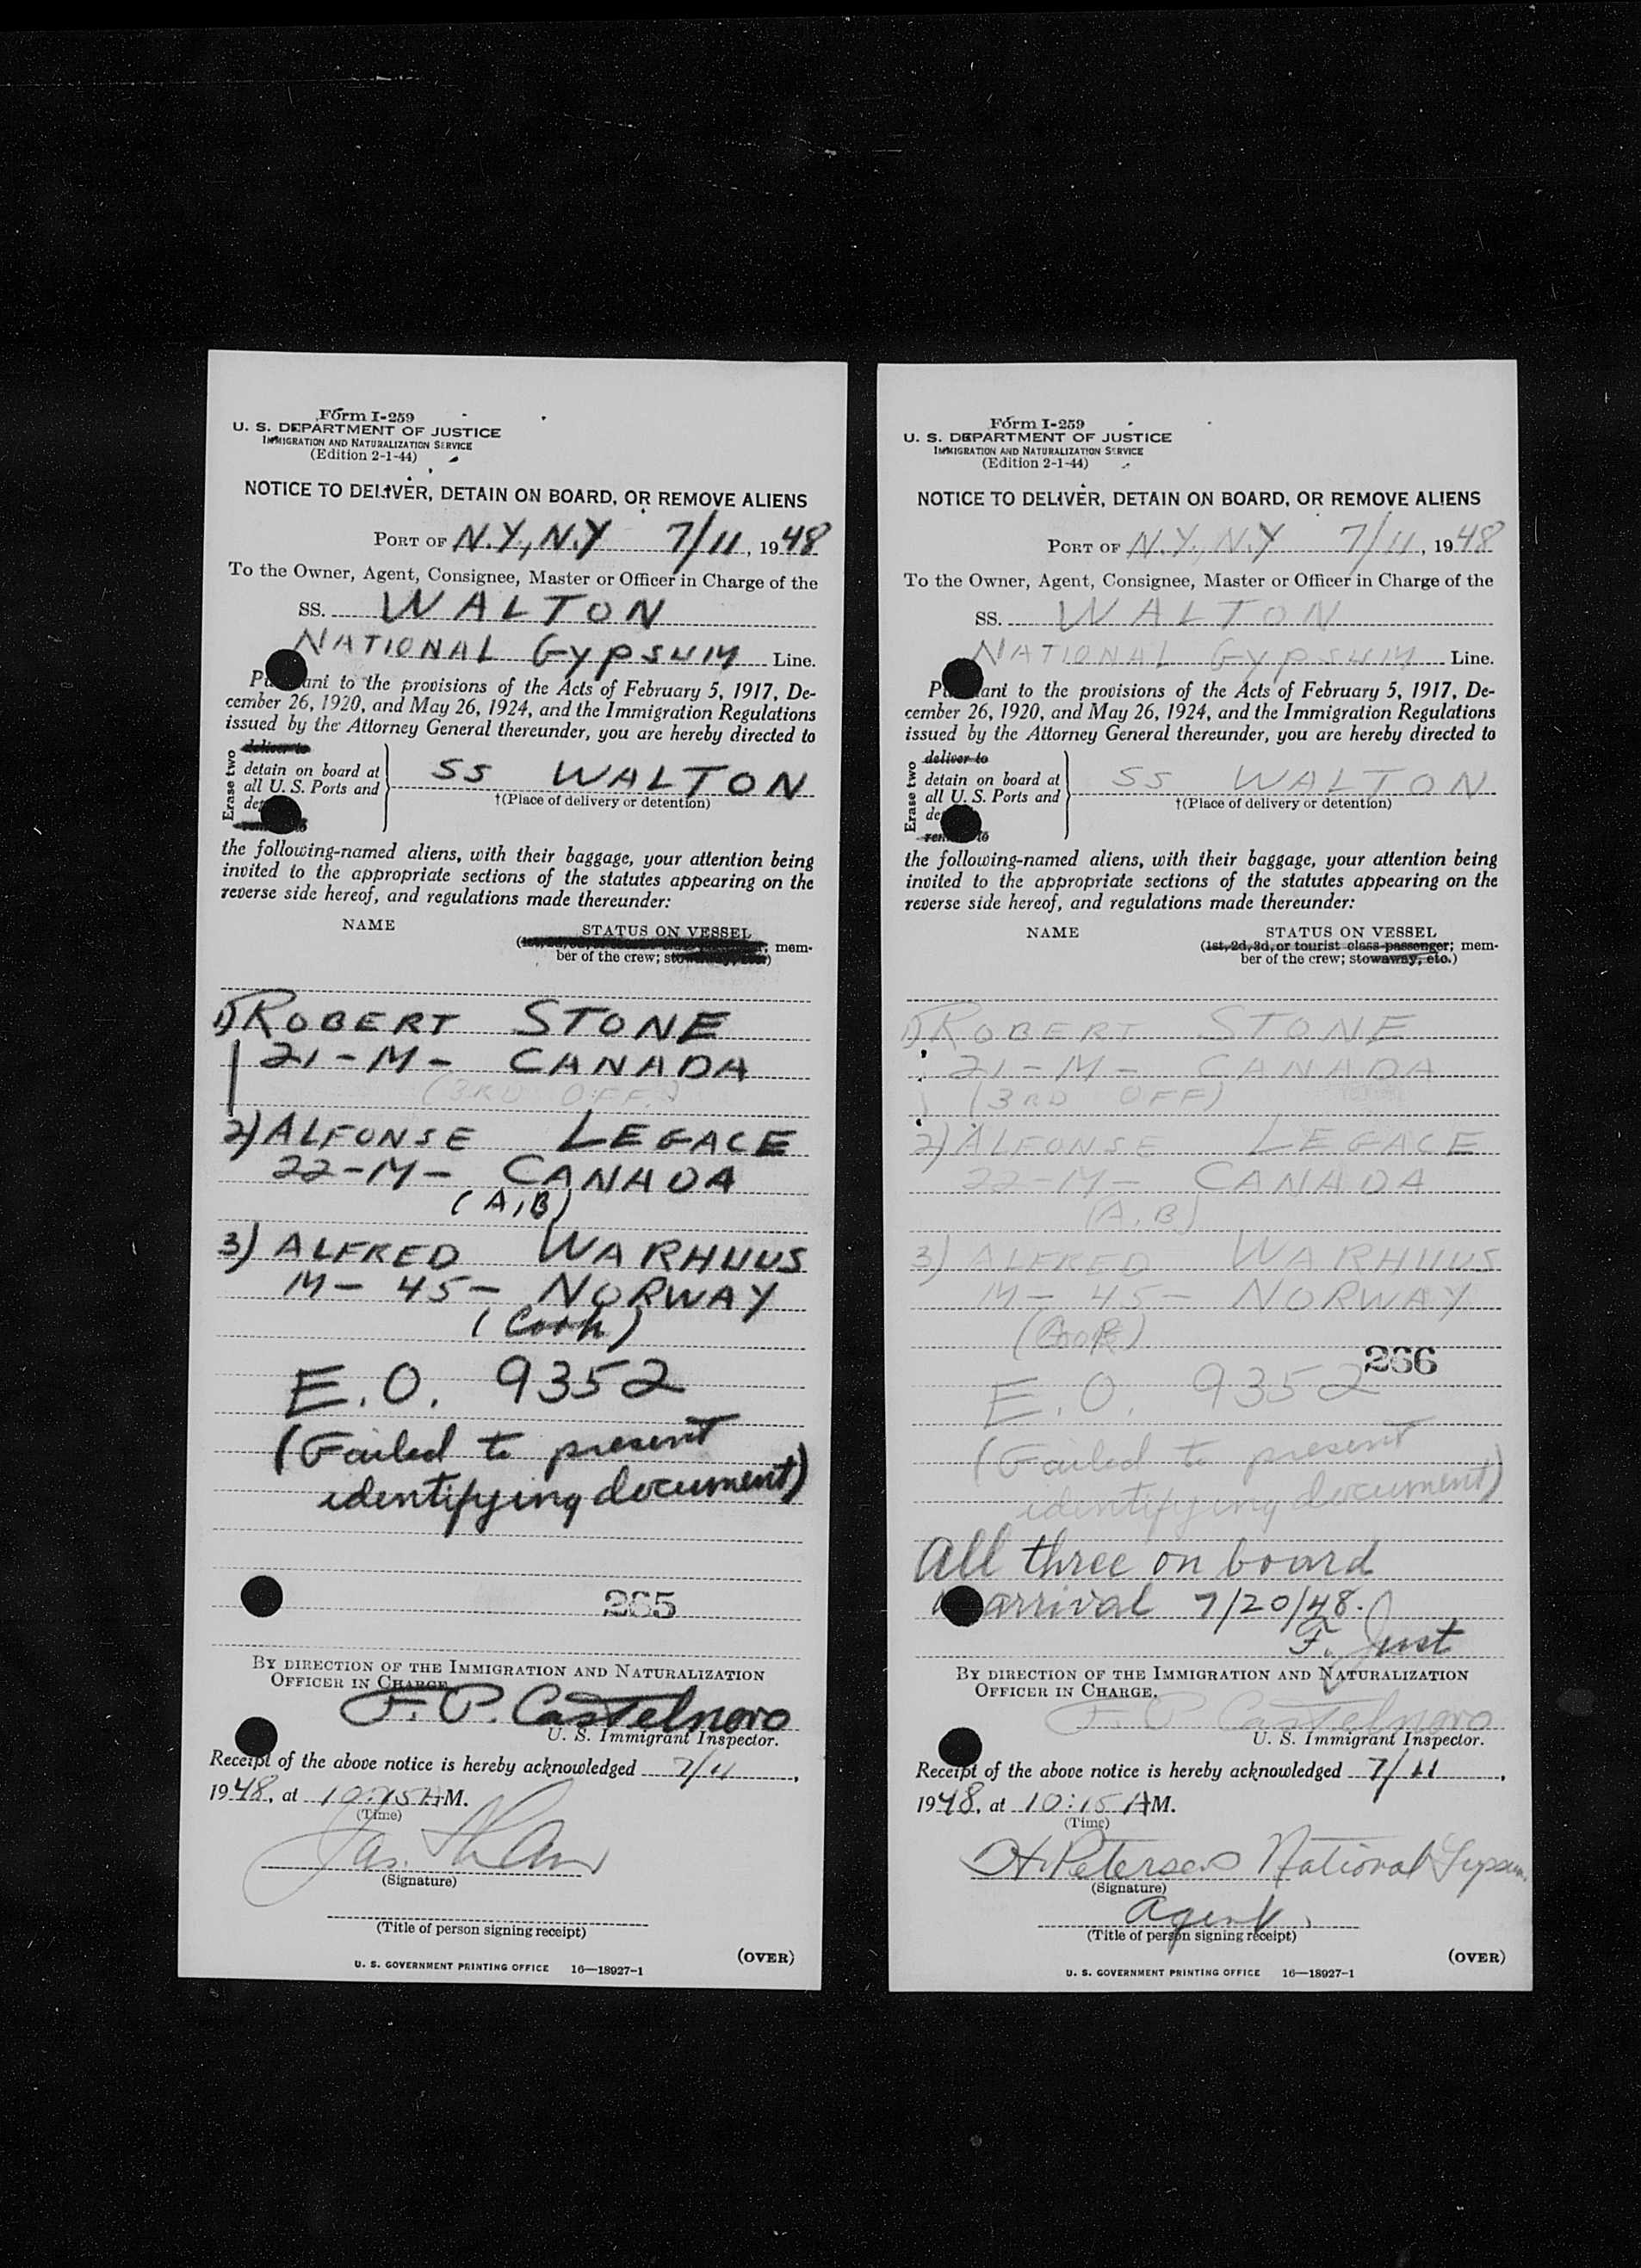 Form I-259
U. S. DEPARTMENT OF JUSTICE
IMMIGRATION AND NATURALIZATION SERVICE
(Edition 2-1-44)
NOTICE TO DELIVER, DETAIN ON BOARD, OR REMOVE ALIENS
PORT OF N.Y., N.Y 7/11, 1948
To the Owner, Agent, Consignee, Master or Officer in Charge of the
SS. WALTON
NATIONAL GYPSUM Line.
Pu ant to the provisions of the Acts of February 5, 1917, De-
cember 26, 1920, and May 26, 1924, and the Immigration Regulations
issued by the Attorney General thereunder, you are hereby directed to
Erase two
deliver to
detain on board at
all U. S. Ports and
de
SS WALTON
†(Place of delivery or detention)
the following-named aliens, with their baggage, your attention being
invited to the appropriate sections of the statutes appearing on the
reverse side hereof, and regulations made thereunder:
NAME STATUS ON VESSEL
mem-
ber of the crew;
1) ROBERT STONE
21-M- CANADA
(3RD OFF.)
2) ALFONSE LEGACE
22-M- CANADA
(A.B)
3) ALFRED WARHUUS
M- 45- NORWAY
(Cook)
E.O. 9352
(Failed to present
identifying document)
265
BY DIRECTION OF THE IMMIGRATION AND NATURALIZATION
OFFICER IN CHARGE.
F. P. Castelnovo
U. S. Immigrant Inspector.
Receipt of the above notice is hereby acknowledged 7/11,
1948, at 10:15 AM.
(Time)
Jas.
(Signature)
(Title of person signing receipt)
(OVER)
U. S. GOVERNMENT PRINTING OFFICE 16—18927-1
Form I-259
U. S. DEPARTMENT OF JUSTICE
IMMIGRATION AND NATURALIZATION SERVICE
(Edition 2-1-44)
NOTICE TO DELIVER, DETAIN ON BOARD, OR REMOVE ALIENS
PORT OF N.Y., N.Y 7/11, 1948
To the Owner, Agent, Consignee, Master or Officer in Charge of the
SS. WALTON
NATIONAL GYPSUM Line.
Pu ant to the provisions of the Acts of February 5, 1917, De-
cember 26, 1920, and May 26, 1924, and the Immigration Regulations
issued by the Attorney General thereunder, you are hereby directed to
Erase two
deliver to
detain on board at
all U. S. Ports and
de
rem to
SS WALTON
†(Place of delivery or detention)
the following-named aliens, with their baggage, your attention being
invited to the appropriate sections of the statutes appearing on the
reverse side hereof, and regulations made thereunder:
NAME STATUS ON VESSEL
(1st, 2d, 3d, or tourist class passenger; mem-
ber of the crew; stowaway, etc.)
1) ROBERT STONE
21-M- CANADA
(3RD OFF)
2) ALFONSE LEGACE
22-M- CANADA
(A.B)
3) ALFRED WARHUUS
M- 45- NORWAY
(Cook)
266
E.O. 9352
(Failed to present
identifying document)
All three on board
arrival 7/20/48.
F. Just
BY DIRECTION OF THE IMMIGRATION AND NATURALIZATION
OFFICER IN CHARGE.
F. P. Castelnovo
U. S. Immigrant Inspector.
Receipt of the above notice is hereby acknowledged 7/11,
1948, at 10:15 AM.
(Time)
H. Petersen National Gypsum
(Signature)
Agent.
(Title of person signing receipt)
(OVER)
U. S. GOVERNMENT PRINTING OFFICE 16—18927-1